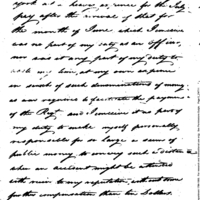 York at a heavy expense for the July
pay after the arrival of that for
the month of June which I conceive
was no part of my duty as an officer,
nor was it any part of my duty to
at my own expense
in search of such denominations of money
as was requisite to facilitate the payment
of the Regt and I conceive it no part of
my duty to make myself personally
responsible for so large a sum of
public money to convey such a distance
when an accident might be attended
with ruin to my reputation, without any
further compensation than ten Dollars.